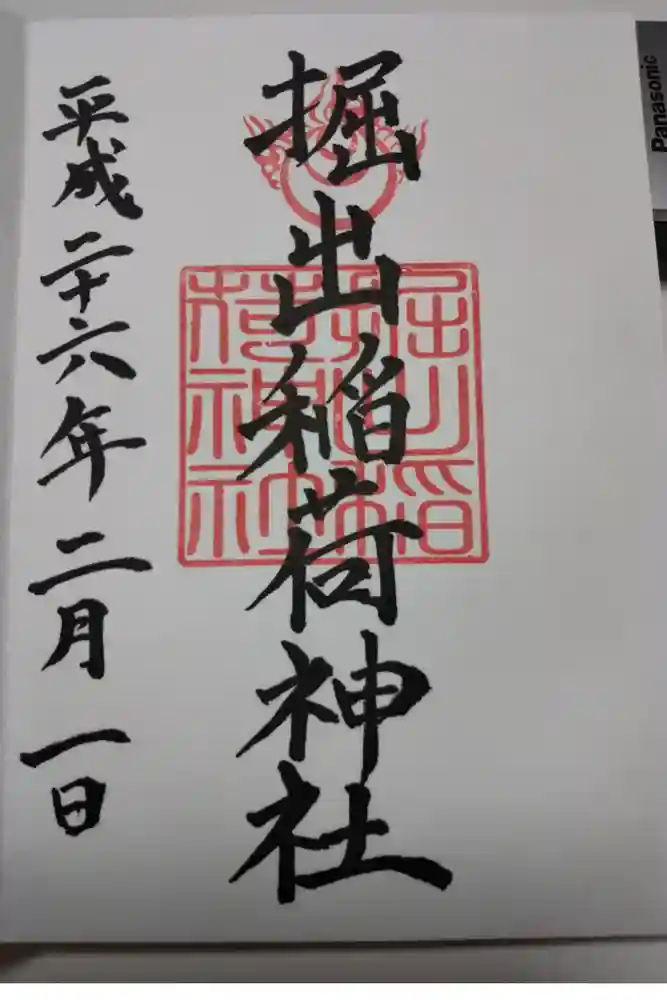 掘出稲荷神社
平成二十六年二月一日
掘出稲
荷神社
Panasonic